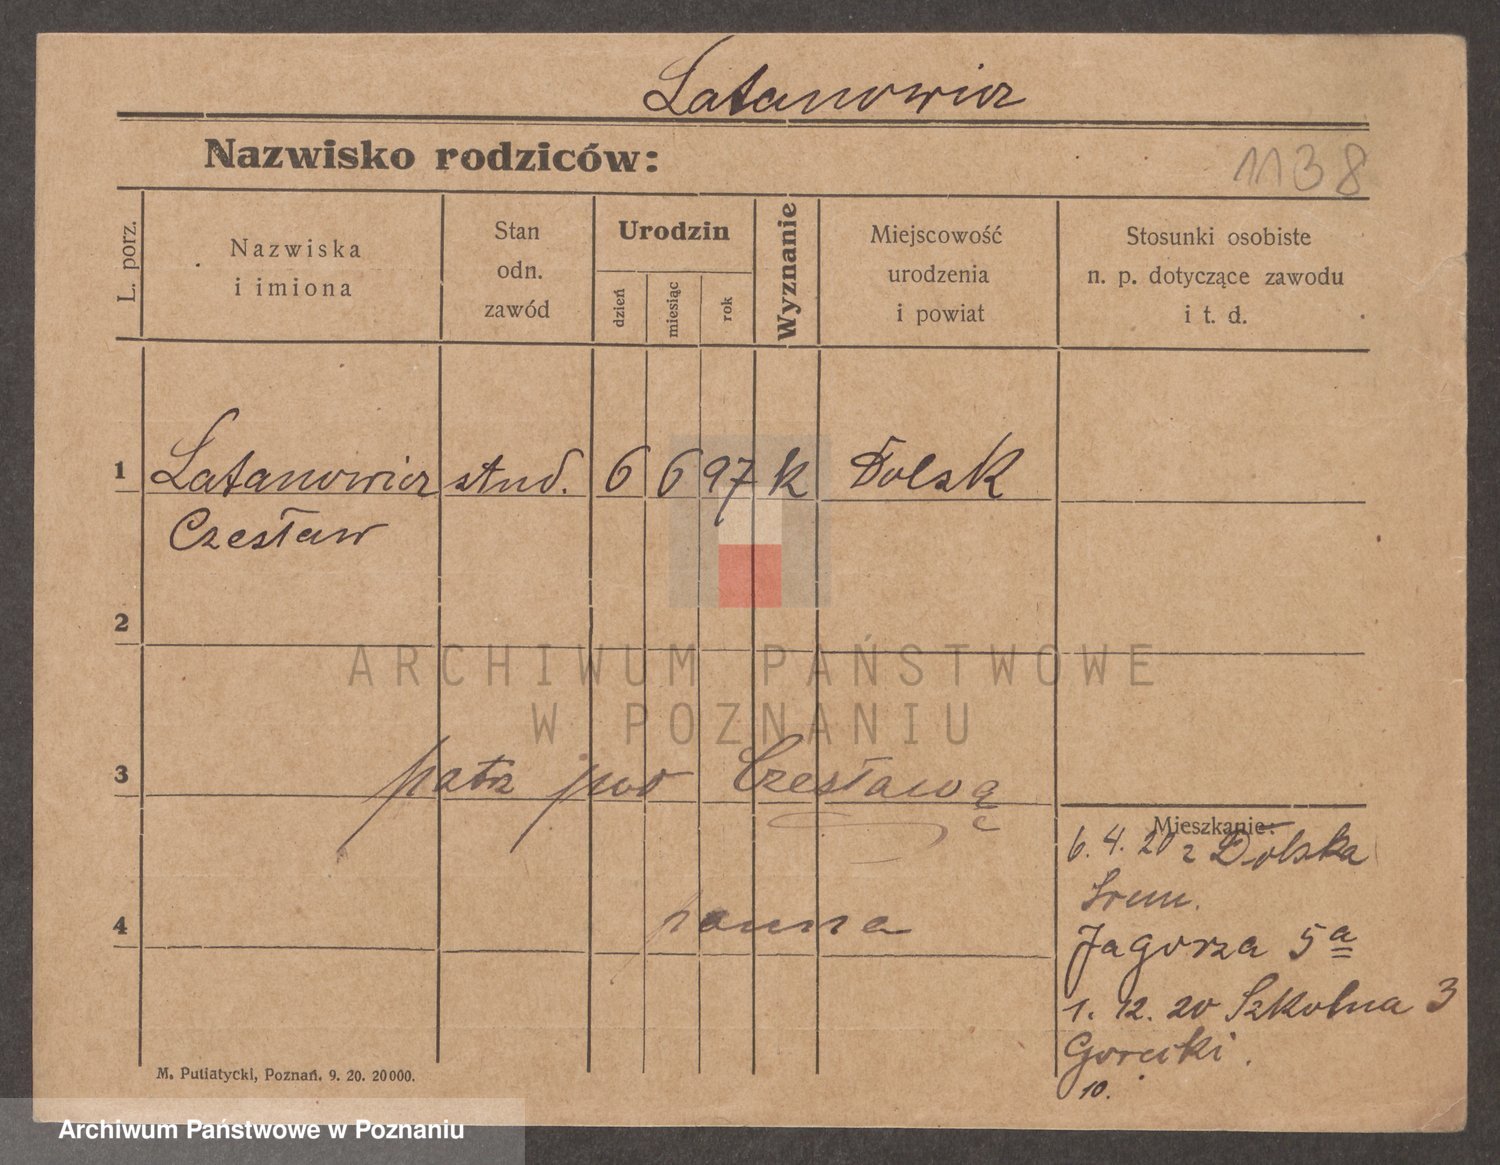 Latanowicz
Nazwisko rodziców:
1138
L. porz.
Nazwiska
i imiona
Stan
odn.
zawód
Urodzin
dzień
miesiąc
rok
Wyznanie
Miejscowość
urodzenia
i powiat
Stosunki osobiste
n. p. dotyczące zawodu
i t. d.
1 Latanowicz stud. 6 6 97 k Dolsk
Czesław
2
ARCHIWUM PAŃSTWOWE
W POZNANIU
3 patrz pod Czesławą
4 panna
Mieszkanie:
6. 4. 20 z Dolska
Śrem.
Zagorza 5a
1. 12. 20 Szkolna 3
Gorecki.
10.
M. Putiatycki, Poznań. 9. 20. 20000.
Archiwum Państwowe w Poznaniu